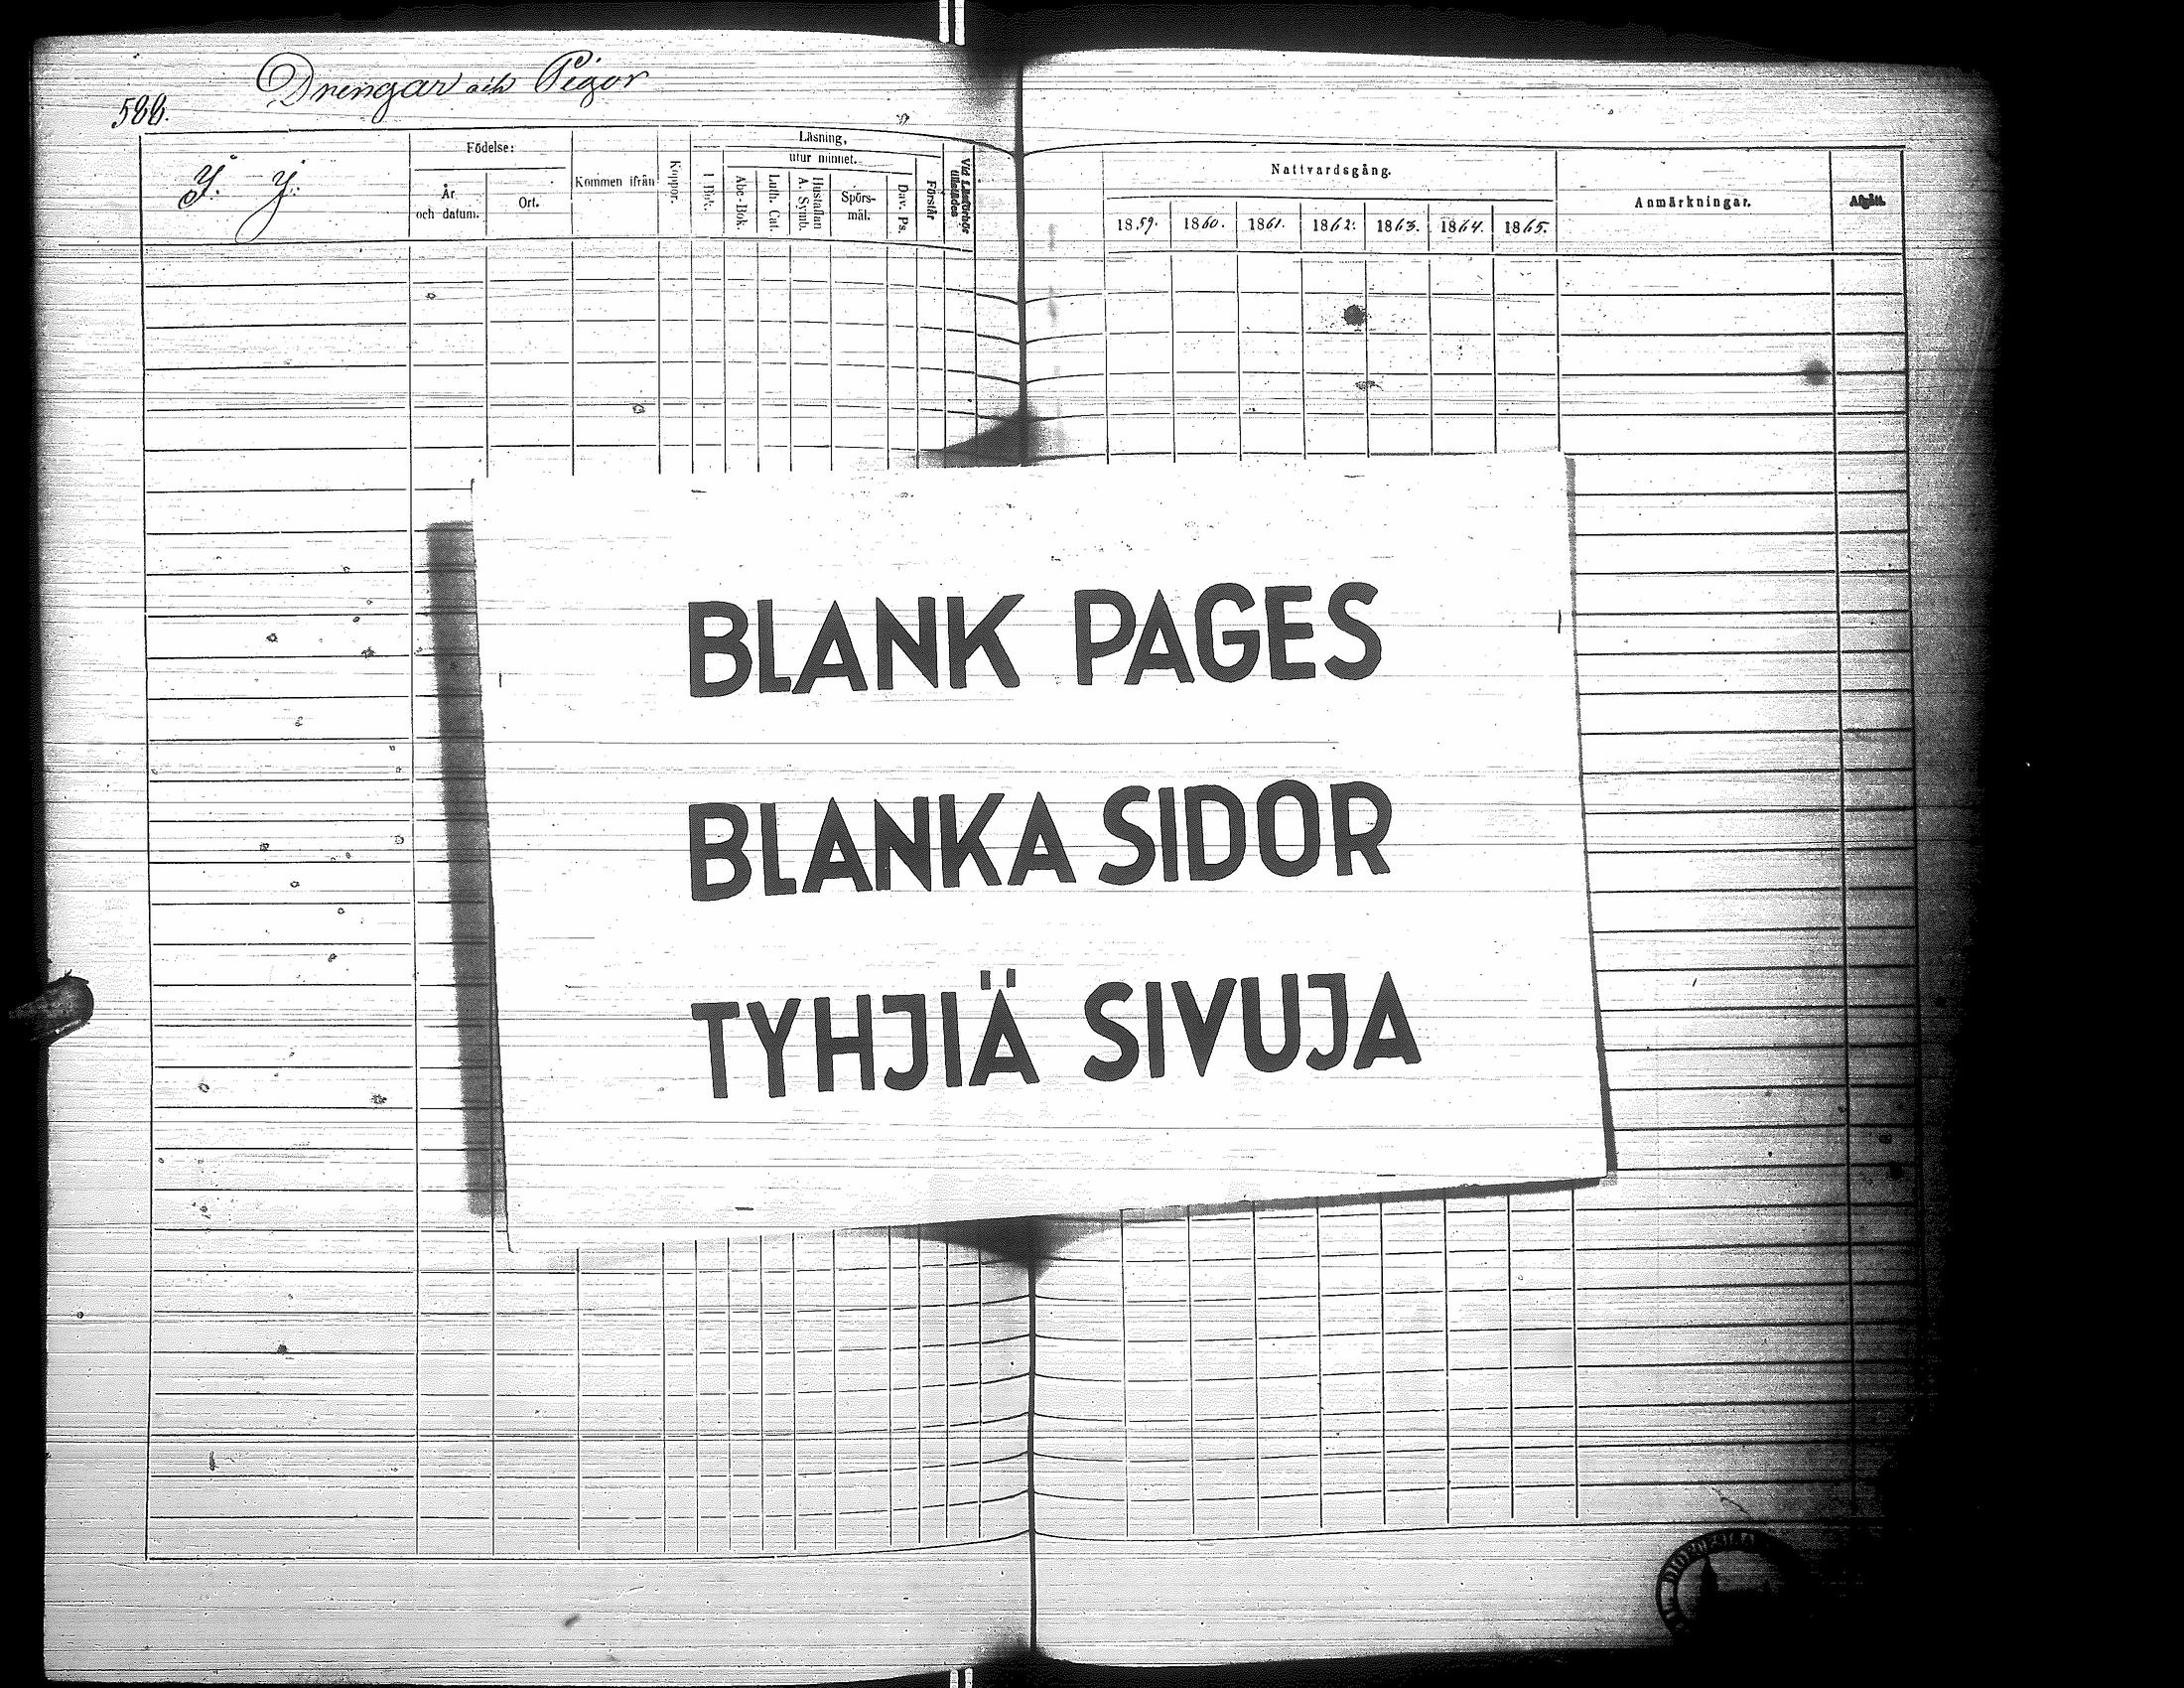 Drengar och Pigor
588.
J. J.
Födelse:
År
och datum.
Ort.
Kommen ifrån
Koppor.
Läsning,
utur minnet.
I Bok.
Abc-Bok.
Luth. Cat.
Hustaflan
A. Symb.
Spörs-
mål.
Dav. Ps.
Förstår
Vid Läsförhör
Nattvardsgång.
1859. 1860. 1861. 1862. 1863. 1864. 1865.
Anmärkningar.
Afgått.
BLANK PAGES
BLANKA SIDOR
TYHJIÄ SIVUJA